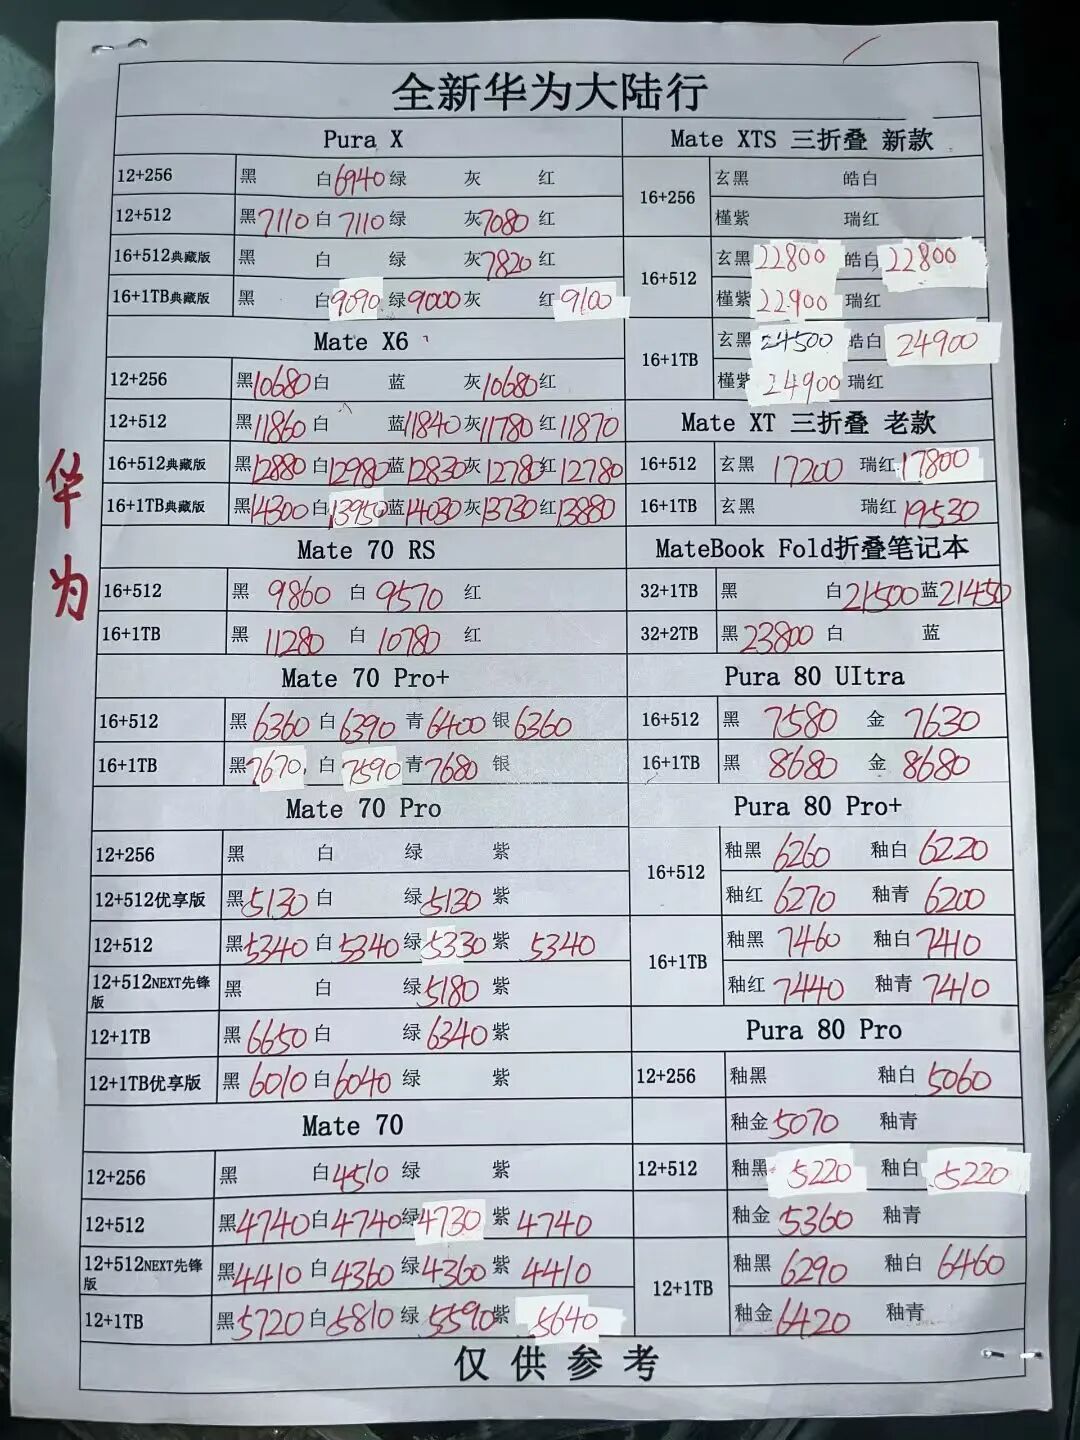 华为
全新华为大陆行
Pura X
12+256 黑 白6940 绿 灰 红
12+512 黑7110 白7110 绿 灰7080 红
16+512典藏版 黑 白 绿 灰7820 红
16+1TB典藏版 黑 白9090 绿9000 灰 红9100
Mate X6
12+256 黑10680 白 蓝 灰10680 红
12+512 黑11860 白 蓝11840 灰11780 红11870
16+512典藏版 黑12880 白12980 蓝12830 灰12780 红12780
16+1TB典藏版 黑14300 白13950 蓝14030 灰13730 红13880
Mate 70 RS
16+512 黑 9860 白 9570 红
16+1TB 黑 11280 白 10780 红
Mate 70 Pro+
16+512 黑6360 白6390 青6400 银6360
16+1TB 黑7670 白7590 青7680 银
Mate 70 Pro
12+256 黑 白 绿 紫
12+512优享版 黑5130 白 绿5130 紫
12+512 黑5340 白5340 绿5330 紫 5340
12+512NEXT先锋版 黑 白 绿5180 紫
12+1TB 黑6650 白 绿6340 紫
12+1TB优享版 黑6010 白6040 绿 紫
Mate 70
12+256 黑 白4510 绿 紫
12+512 黑4740 白4740 绿4730 紫4740
12+512NEXT先锋版 黑4410 白4360 绿4360 紫4410
12+1TB 黑5720 白5810 绿5590 紫5640
Mate XTS 三折叠 新款
16+256 玄黑 皓白
槿紫 瑞红
16+512 玄黑22800 皓白22800
槿紫22900 瑞红
16+1TB 玄黑24500 皓白24900
槿紫24900 瑞红
Mate XT 三折叠 老款
16+512 玄黑 17200 瑞红17800
16+1TB 玄黑 瑞红19530
MateBook Fold折叠笔记本
32+1TB 黑 白21500 蓝21450
32+2TB 黑23800 白 蓝
Pura 80 UItra
16+512 黑 7580 金 7630
16+1TB 黑 8680 金 8680
Pura 80 Pro+
16+512 釉黑 6260 釉白 6220
釉红 6270 釉青 6200
16+1TB 釉黑 7460 釉白7410
釉红 7440 釉青 7410
Pura 80 Pro
12+256 釉黑 釉白 5060
釉金5070 釉青
12+512 釉黑 5220 釉白 5220
釉金 5360 釉青
12+1TB 釉黑 6290 釉白 6460
釉金 6420 釉青
仅供参考